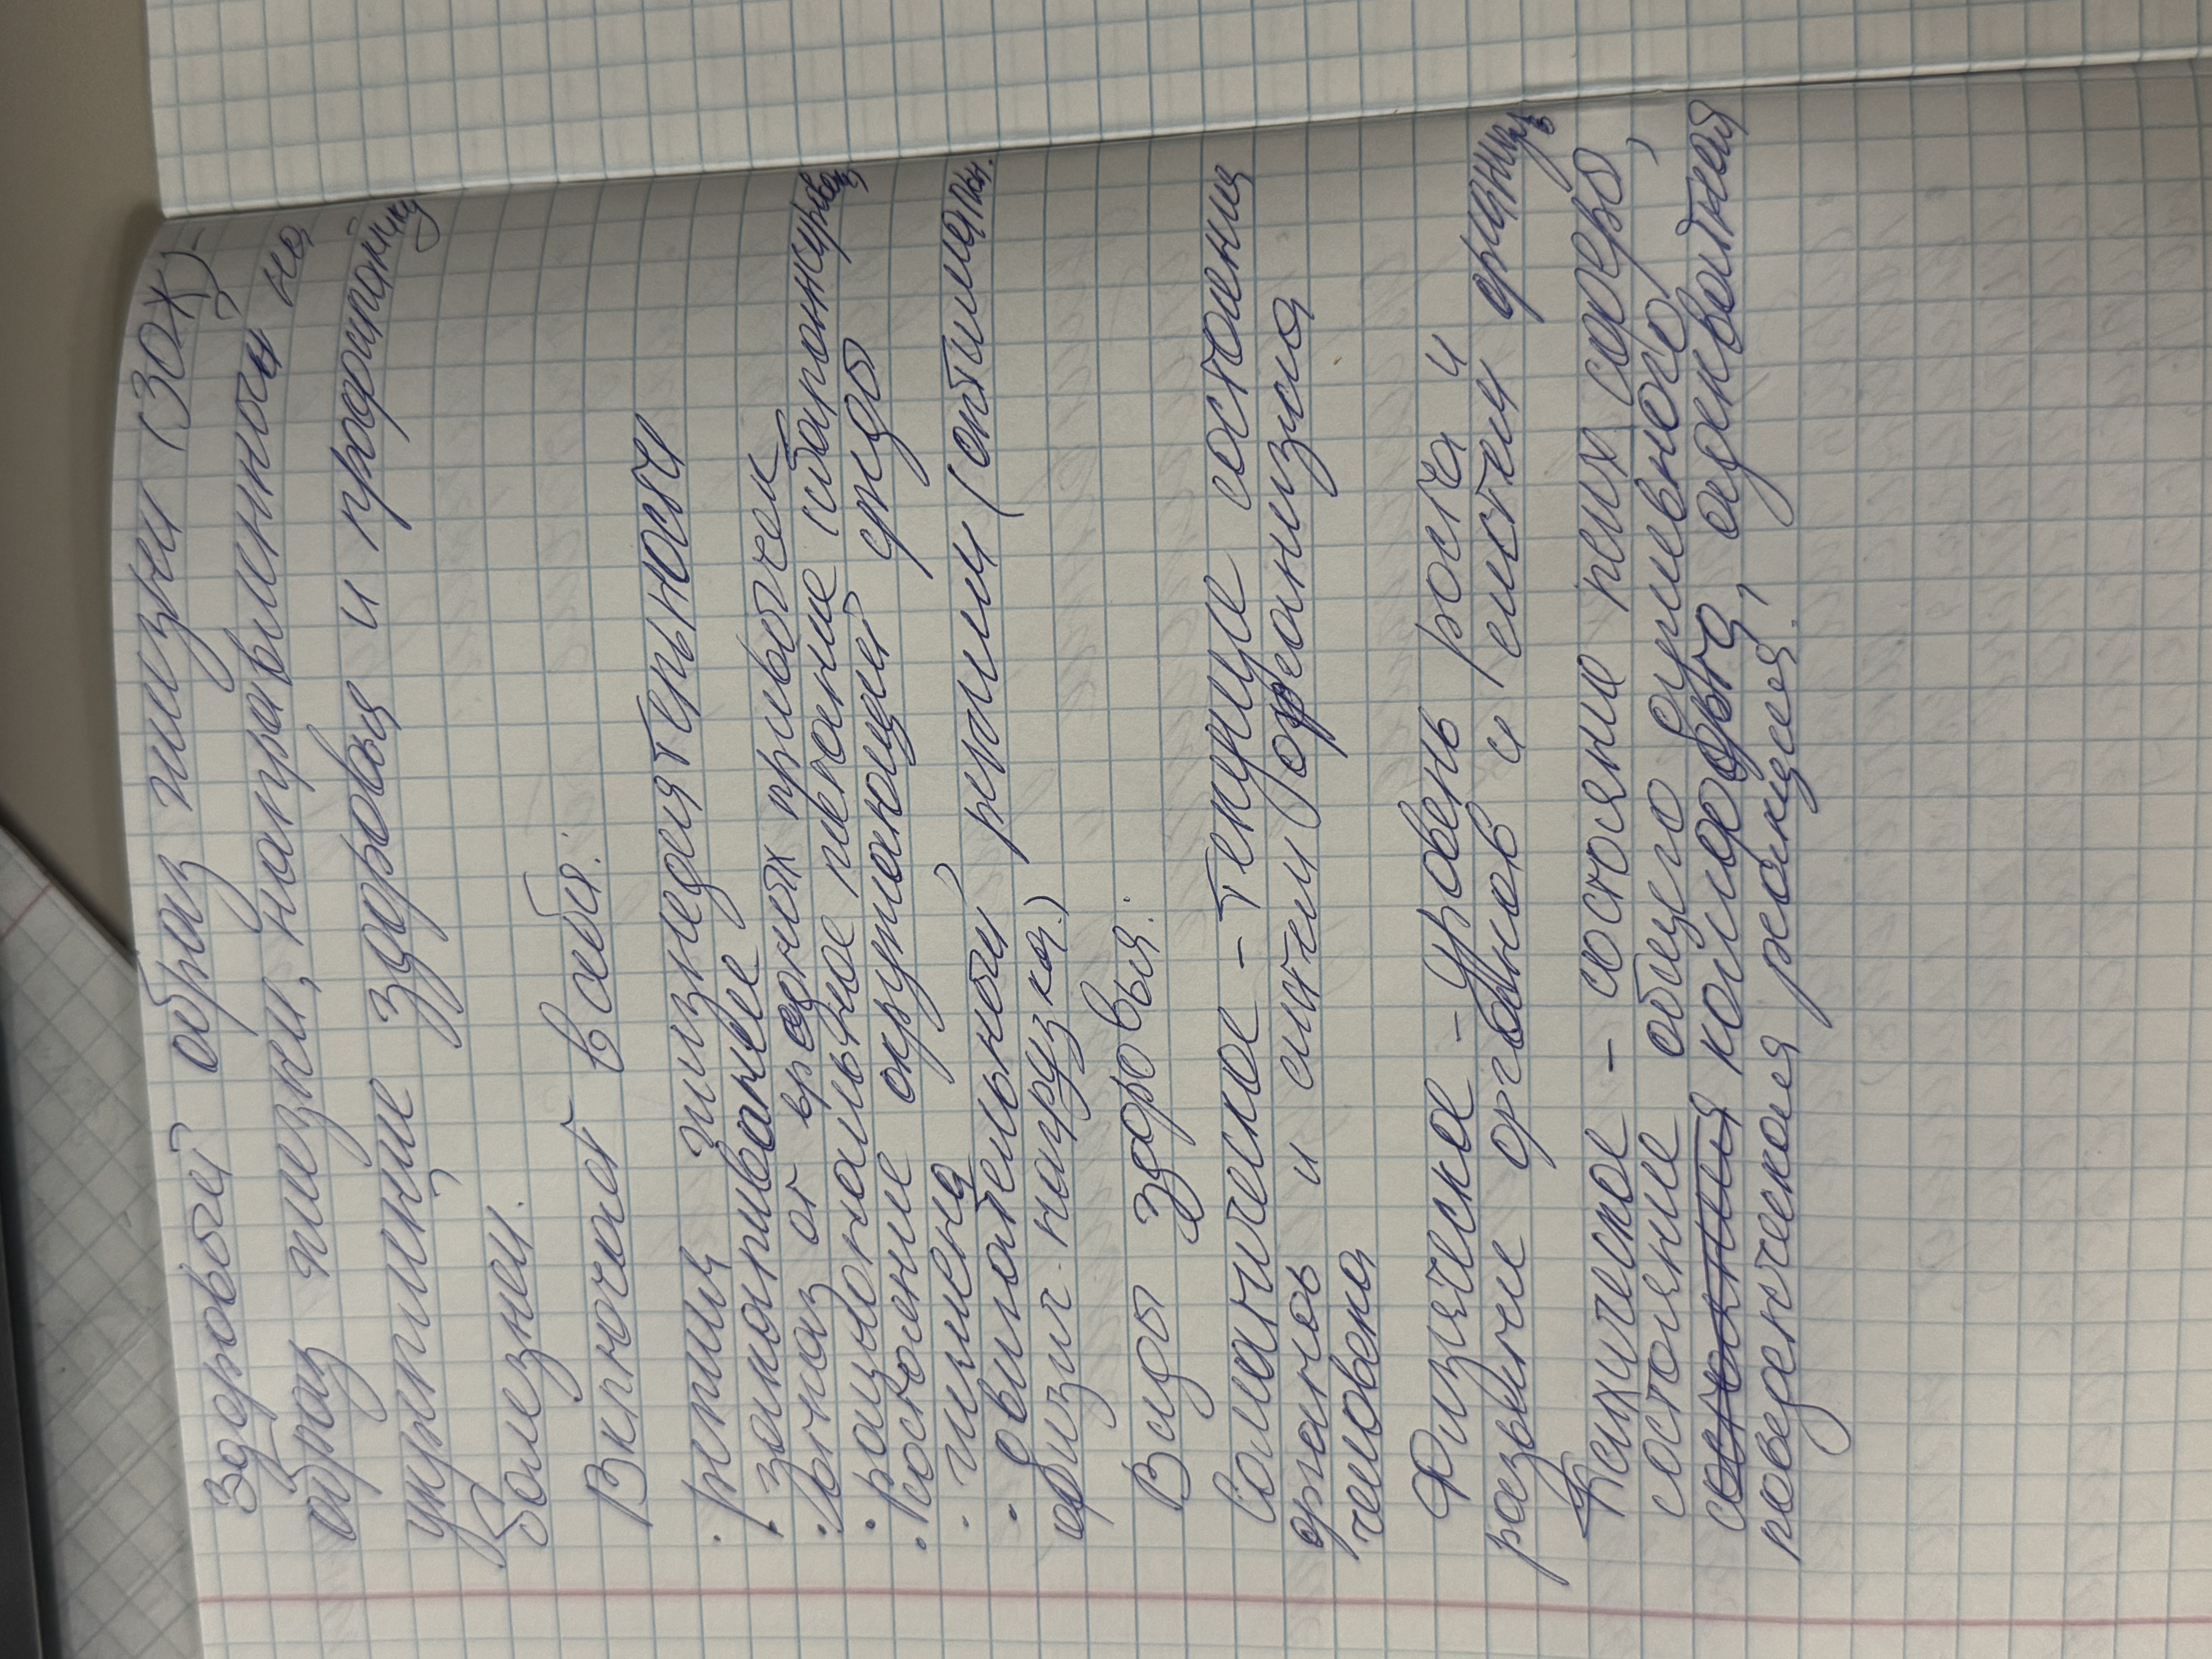 Здоровый образ жизни (ЗОЖ)-
образ жизни, направленный на
укрепление здоровья и профилактику
болезней.
Включает в себя:
· режим жизнедеятельности
· закаливание
· отказ от вредных привычек
· рациональное питание (сбалансиров.)
· Состояние окружающей среды
· гигиена
· двигательной режим (оптимальн.
физич. нагрузка.)
Виды здоровья:
Соматическое - текущее состояния
органов и систем организма
человека
Физическое - уровень роста и
развитие органов и систем
Психическое - состояние псих сферы,
состояние общего душевного
комфорта, адекватная
поведенческая реакция.